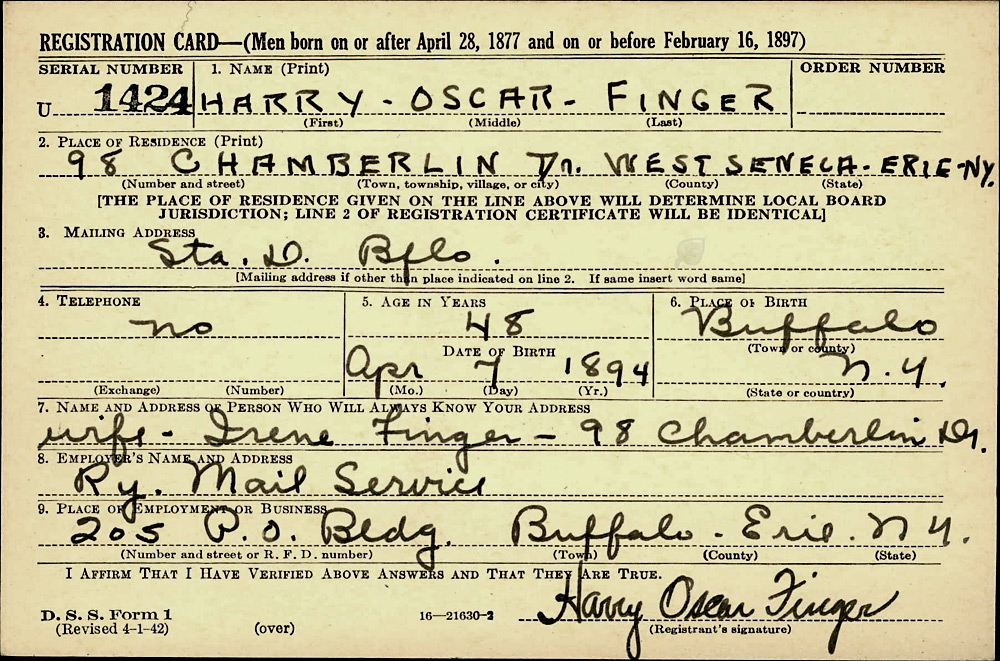 REGISTRATION CARD—(Men born on or after April 28, 1877 and on or before February 16, 1897)
SERIAL NUMBER 1. NAME (Print) ORDER NUMBER
U 1424 HARRY - OSCAR - FINGER
(First) (Middle) (Last)
2. PLACE OF RESIDENCE (Print)
98 CHAMBERLIN Dr. WEST SENECA - ERIE - NY.
(Number and street) (Town, township, village, or city) (County) (State)
[THE PLACE OF RESIDENCE GIVEN ON THE LINE ABOVE WILL DETERMINE LOCAL BOARD
JURISDICTION; LINE 2 OF REGISTRATION CERTIFICATE WILL BE IDENTICAL]
3. MAILING ADDRESS
Sta. D. Bflo.
[Mailing address if other than place indicated on line 2. If same insert word same]
4. TELEPHONE 5. AGE IN YEARS 6. PLACE OF BIRTH
no 48 Buffalo
DATE OF BIRTH (Town or county)
Apr 7 1894 N.Y.
(Exchange) (Number) (Mo.) (Day) (Yr.) (State or country)
7. NAME AND ADDRESS OF PERSON WHO WILL ALWAYS KNOW YOUR ADDRESS
wife - Irene Finger - 98 Chamberlin Dr.
8. EMPLOYER'S NAME AND ADDRESS
Ry. Mail Service
9. PLACE OF EMPLOYMENT OR BUSINESS
205 P.O. Bldg. Buffalo - Erie. N.Y.
(Number and street or R. F. D. number) (Town) (County) (State)
I AFFIRM THAT I HAVE VERIFIED ABOVE ANSWERS AND THAT THEY ARE TRUE.
Harry Oscar Finger
D. S. S. Form 1 16—21630-2
(Revised 4-1-42) (over) (Registrant's signature)